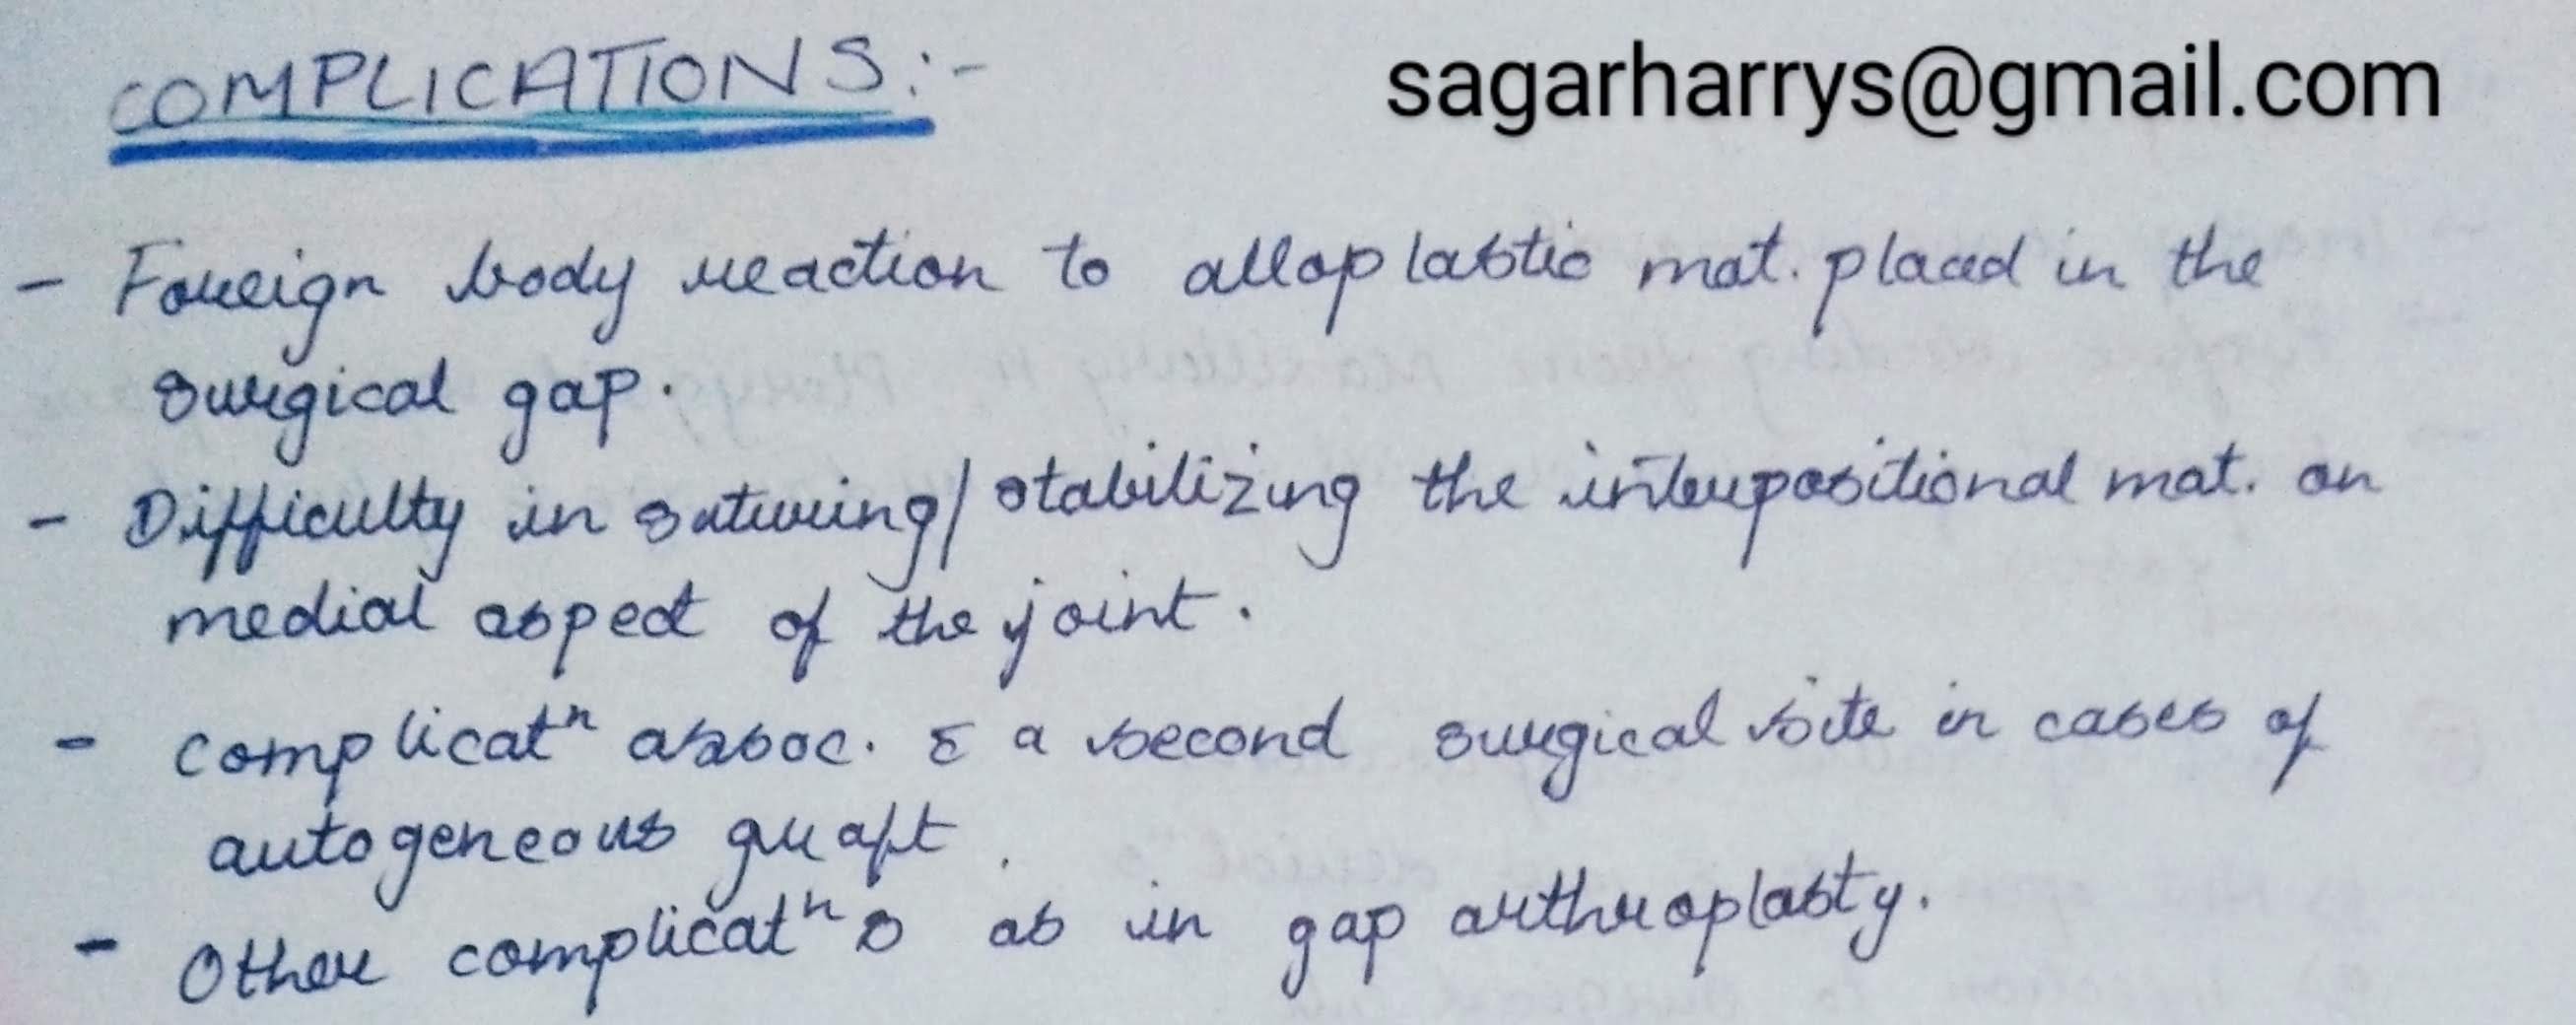 COMPLICATIONS:-
sagarharrys@gmail.com
- Foreign body reaction to alloplastic mat. placed in the
surgical gap.
- Difficulty in suturing/stabilizing the interpositional mat. on
medial aspect of the joint.
- complicatⁿ assoc. c̄ a second surgical site in cases of
autogeneous graft.
- Other complicatⁿs as in gap arthroplasty.